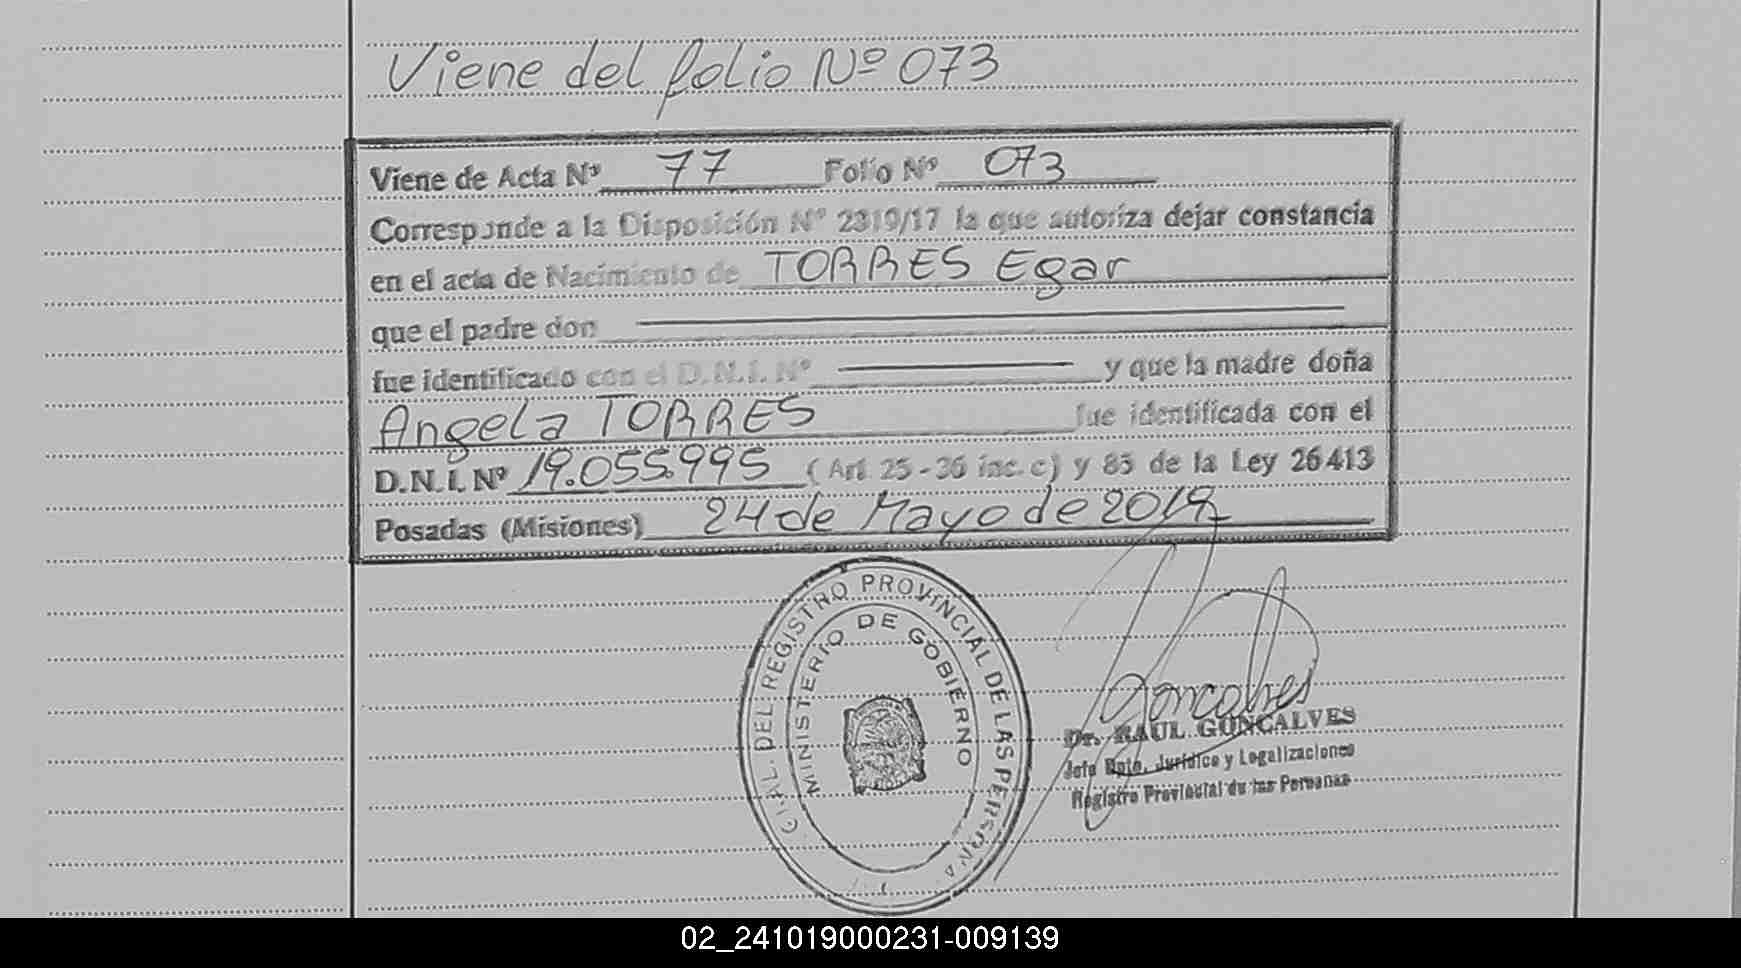 Viene del folio Nº 073
Viene de Acta Nº 77 Folio Nº 073
Corresponde a la Disposición Nº 2319/17 la que autoriza dejar constancia
en el acta de Nacimiento de TORRES Egar
que el padre don
fue identificado con el D.N.I. Nº y que la madre doña
Angela TORRES fue identificada con el
D.N.I. Nº 19.055.995 (Art. 25-36 inc. c) y 85 de la Ley 26413
Posadas (Misiones) 24 de Mayo de 2019
GRAL. DEL REGISTRO PROVINCIAL DE LAS PERSONA
MINISTERIO DE GOBIERNO
Goncalves
Dr. RAUL GONCALVES
Jefe Dpto. Jurídico y Legalizaciones
Registro Provincial de las Personas
02_241019000231-009139